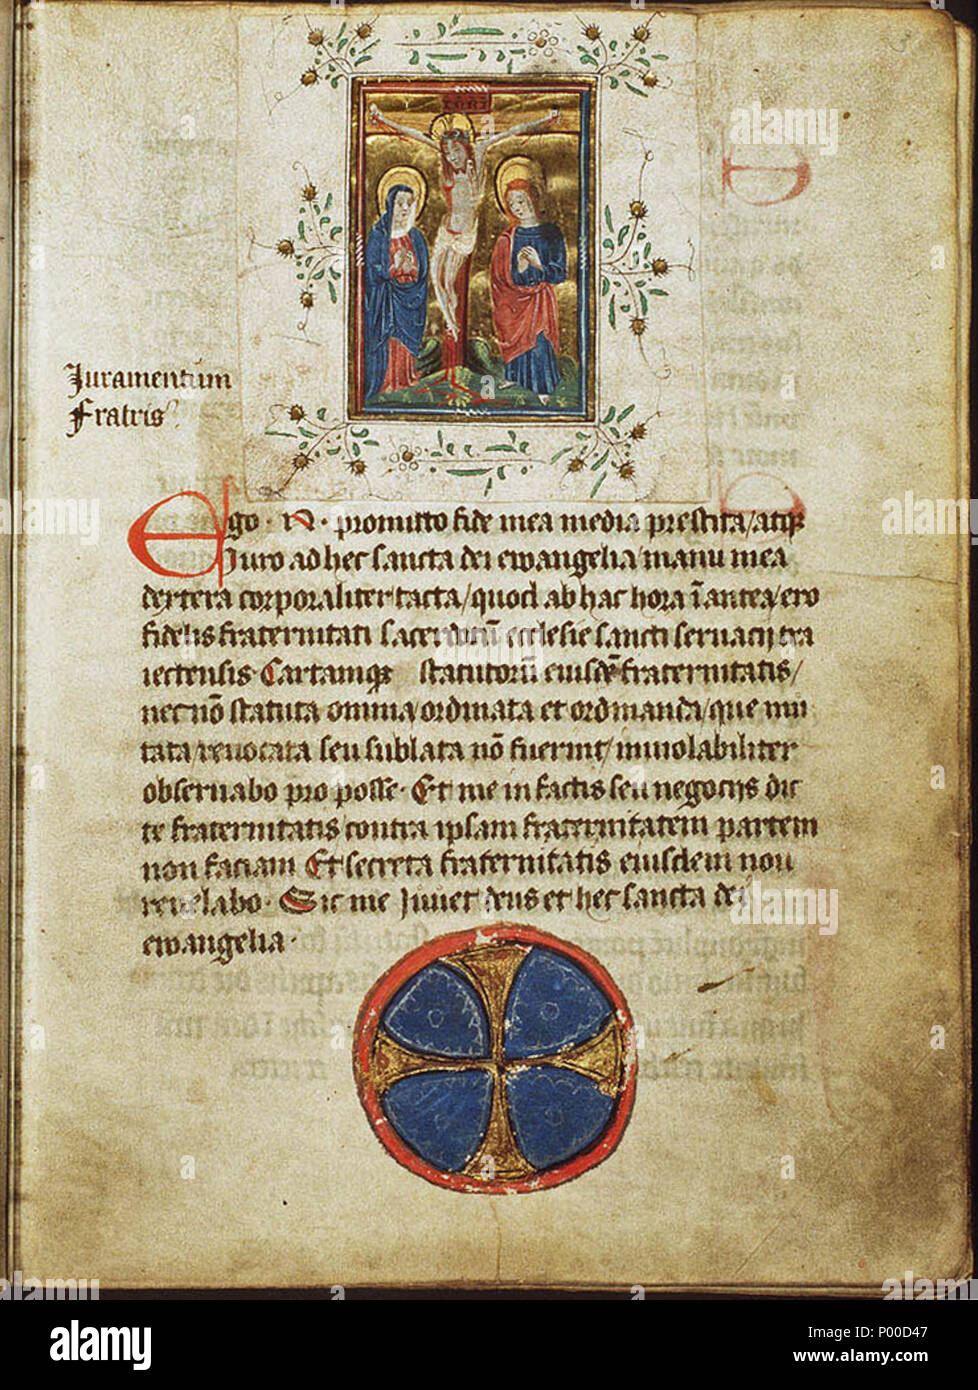 INRI
Juramentum
Fratris
Ego · N · promitto fide mea media prestita/atqꝫ
Juro ad hec sancta dei ewangelia/manu mea
dextera corporaliter tacta/quod ab hac hora īantea/ero
fidelis fraternitati sacerdotū ecclesie sancti seruacij tra
iectensis Cartamqꝫ statutorū eiusdē fraternitatis/
nec nō statuta omnia/ordinata et ordinanda/que mu
tata/reuocata seu sublata nō fuerint/inuiolabiliter
obseruabo pro posse· Et me in factis seu negocijs dic
te fraternitatis/contra ipsam fraternitatem partem
non faciam Et secreta fraternitatis eiusdem non
reuelabo· Sic me Juuet deus et hec sancta dei
ewangelia·
alamy
Image ID: P00D47
www.alamy.com